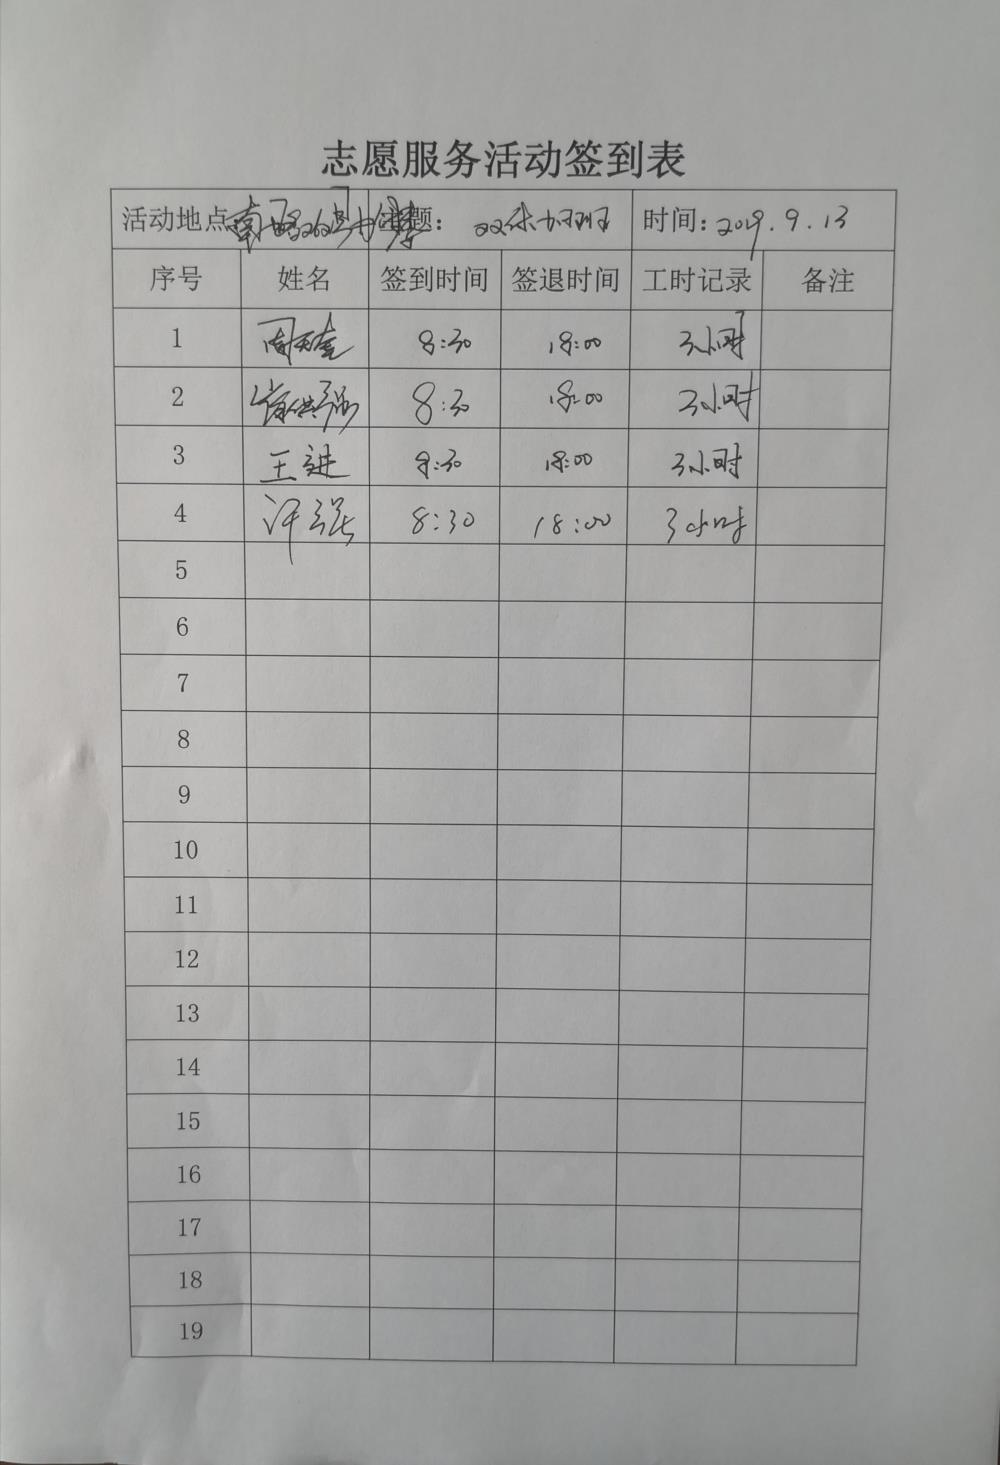 志愿服务活动签到表
活动地点 主题: 双休加班 时间: 2019.9.13
序号 姓名 签到时间 签退时间 工时记录 备注
1 8:30 18:00 3小时
2 8:30 18:00 3小时
3 王进 8:30 18:00 3小时
4 许强 8:30 18:00 3小时
5
6
7
8
9
10
11
12
13
14
15
16
17
18
19